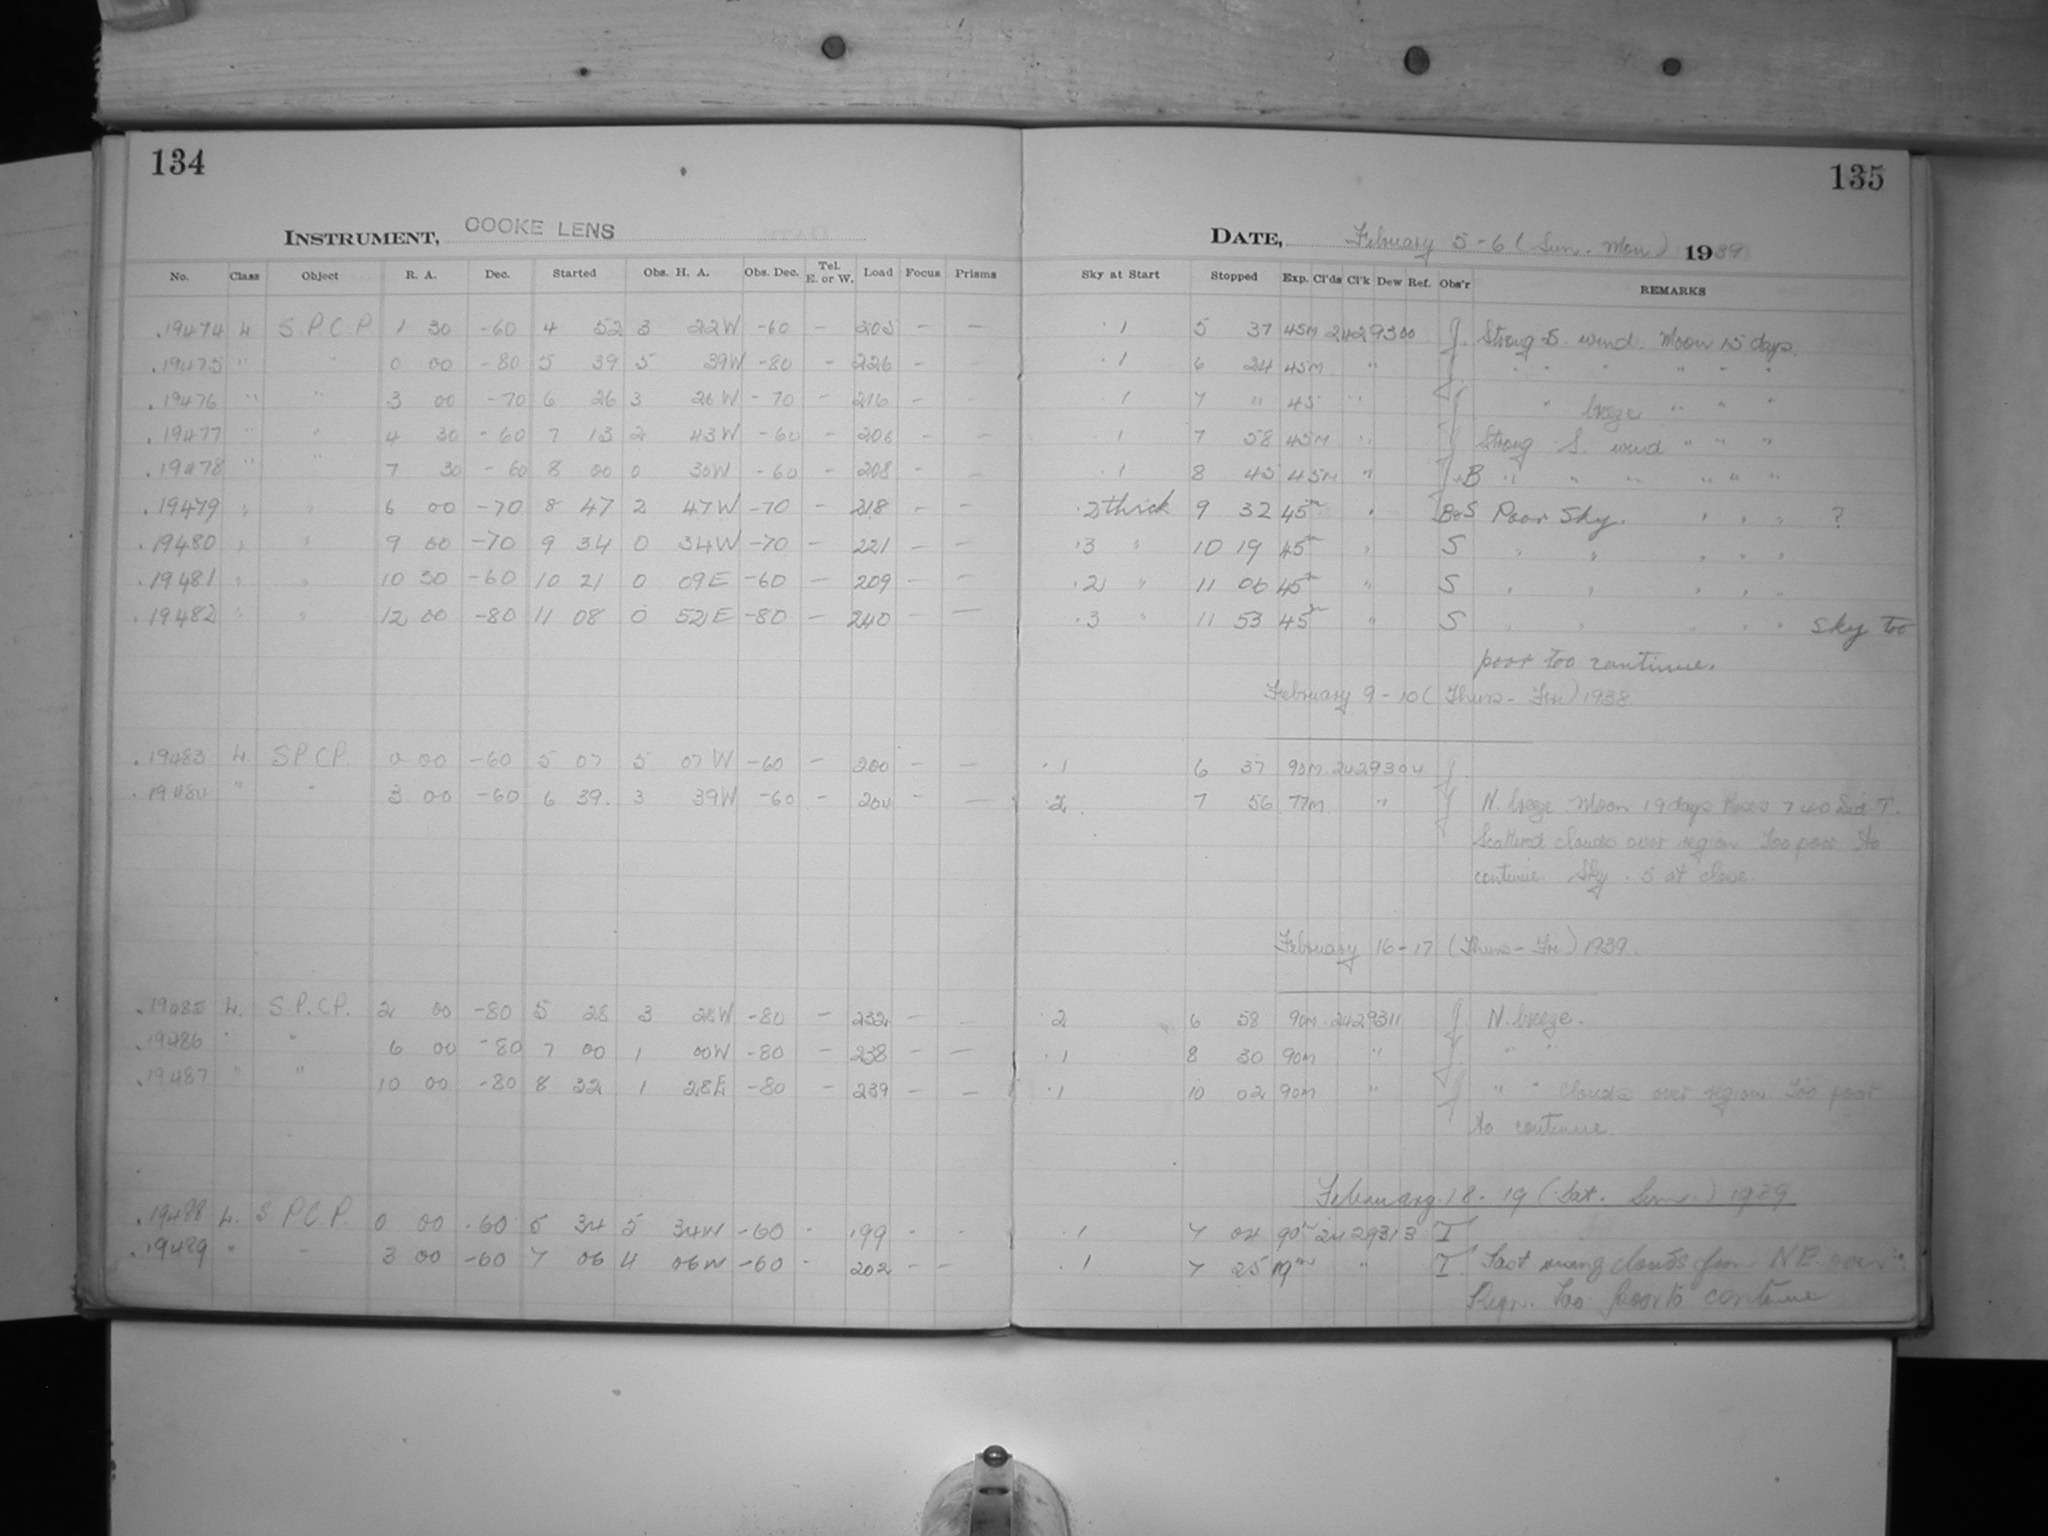 134
135
INSTRUMENT, COOKE LENS
DATE, February 5-6 (Sun. Mon) 1939
No. Class Object R. A. Dec. Started Obs. H. A. Obs. Dec. Tel. E. or W. Load Focus Prisms Sky at Start Stopped Exp. Cl'ds Cl'k Dew Ref. Obs'r REMARKS
.19474 L S.P.C.P 1 30 -60 4 52 3 22W -60 - 205 - - .1 5 37 45m 2429300 J. Strong S. wind. Moon 15 days.
.19475 " " 0 00 -80 5 39 5 39W -80 - 226 - - .1 6 24 45m " J. " " " " " "
.19476 " " 3 00 -70 6 26 3 26W -70 - 216 - - .1 7 11 45 " J " breeze " " "
.19477 " " 4 30 -60 7 13 2 43W -60 - 206 - - .1 7 58 45m " J Strong S. wind " " "
.19478 " " 7 30 -60 8 00 0 30W -60 - 208 - - .1 8 45 45m " J+B " " " " " "
.19479 " " 6 00 -70 8 47 2 47W -70 - 218 - - .2 thick 9 32 45m " B+S Poor Sky. " " " ?
.19480 " " 9 00 -70 9 34 0 34W -70 - 221 - - .3 " 10 19 45m " S " " " " "
.19481 " " 10 30 -60 10 21 0 09E -60 - 209 - - .2 " 11 06 45m " S " " " " "
.19482 " " 12 00 -80 11 08 0 52E -80 - 240 - - .3 " 11 53 45m " S " " " " " Sky too
poor too continue.
February 9-10 (Thurs-Fri) 1938
.19483 L. S.P.C.P. 0 00 -60 5 07 5 07W -60 - 200 - - .1 6 37 90m 2429304 J.
.19484 " " 3 00 -60 6 39. 3 39W -60 - 204 - - .2. 7 56 77m " J N. breeze Moon 19 days Rises 7 40 Sid. T.
Scattered clouds over region Too poor to
continue. Sky .5 at close
February 16-17 (Thurs-Fri) 1939.
.19485 L. S.P.C.P. 2 00 -80 5 28 3 28W -80 - 232 - - .2 6 58 90m 2429311 J. N. breeze.
.19486 " " 6 00 -80 7 00 1 00W -80 - 238 - - .1 8 30 90m " J. " "
.19487 " " 10 00 -80 8 32 1 28E -80 - 239 - - .1 10 02 90m " J " " Clouds over region. Too poor
to continue
February 18-19 (Sat. Sun.) 1939
.19488 L. S.P.C.P. 0 00 -60 5 34 5 34W -60 - 199 - - .1 7 04 90m 2429313 T
.19489 " " 3 00 -60 7 06 4 06W -60 - 202 - - .1 7 25 19m " T. Fast clouds from NE. over
Regn. Too poor to continue